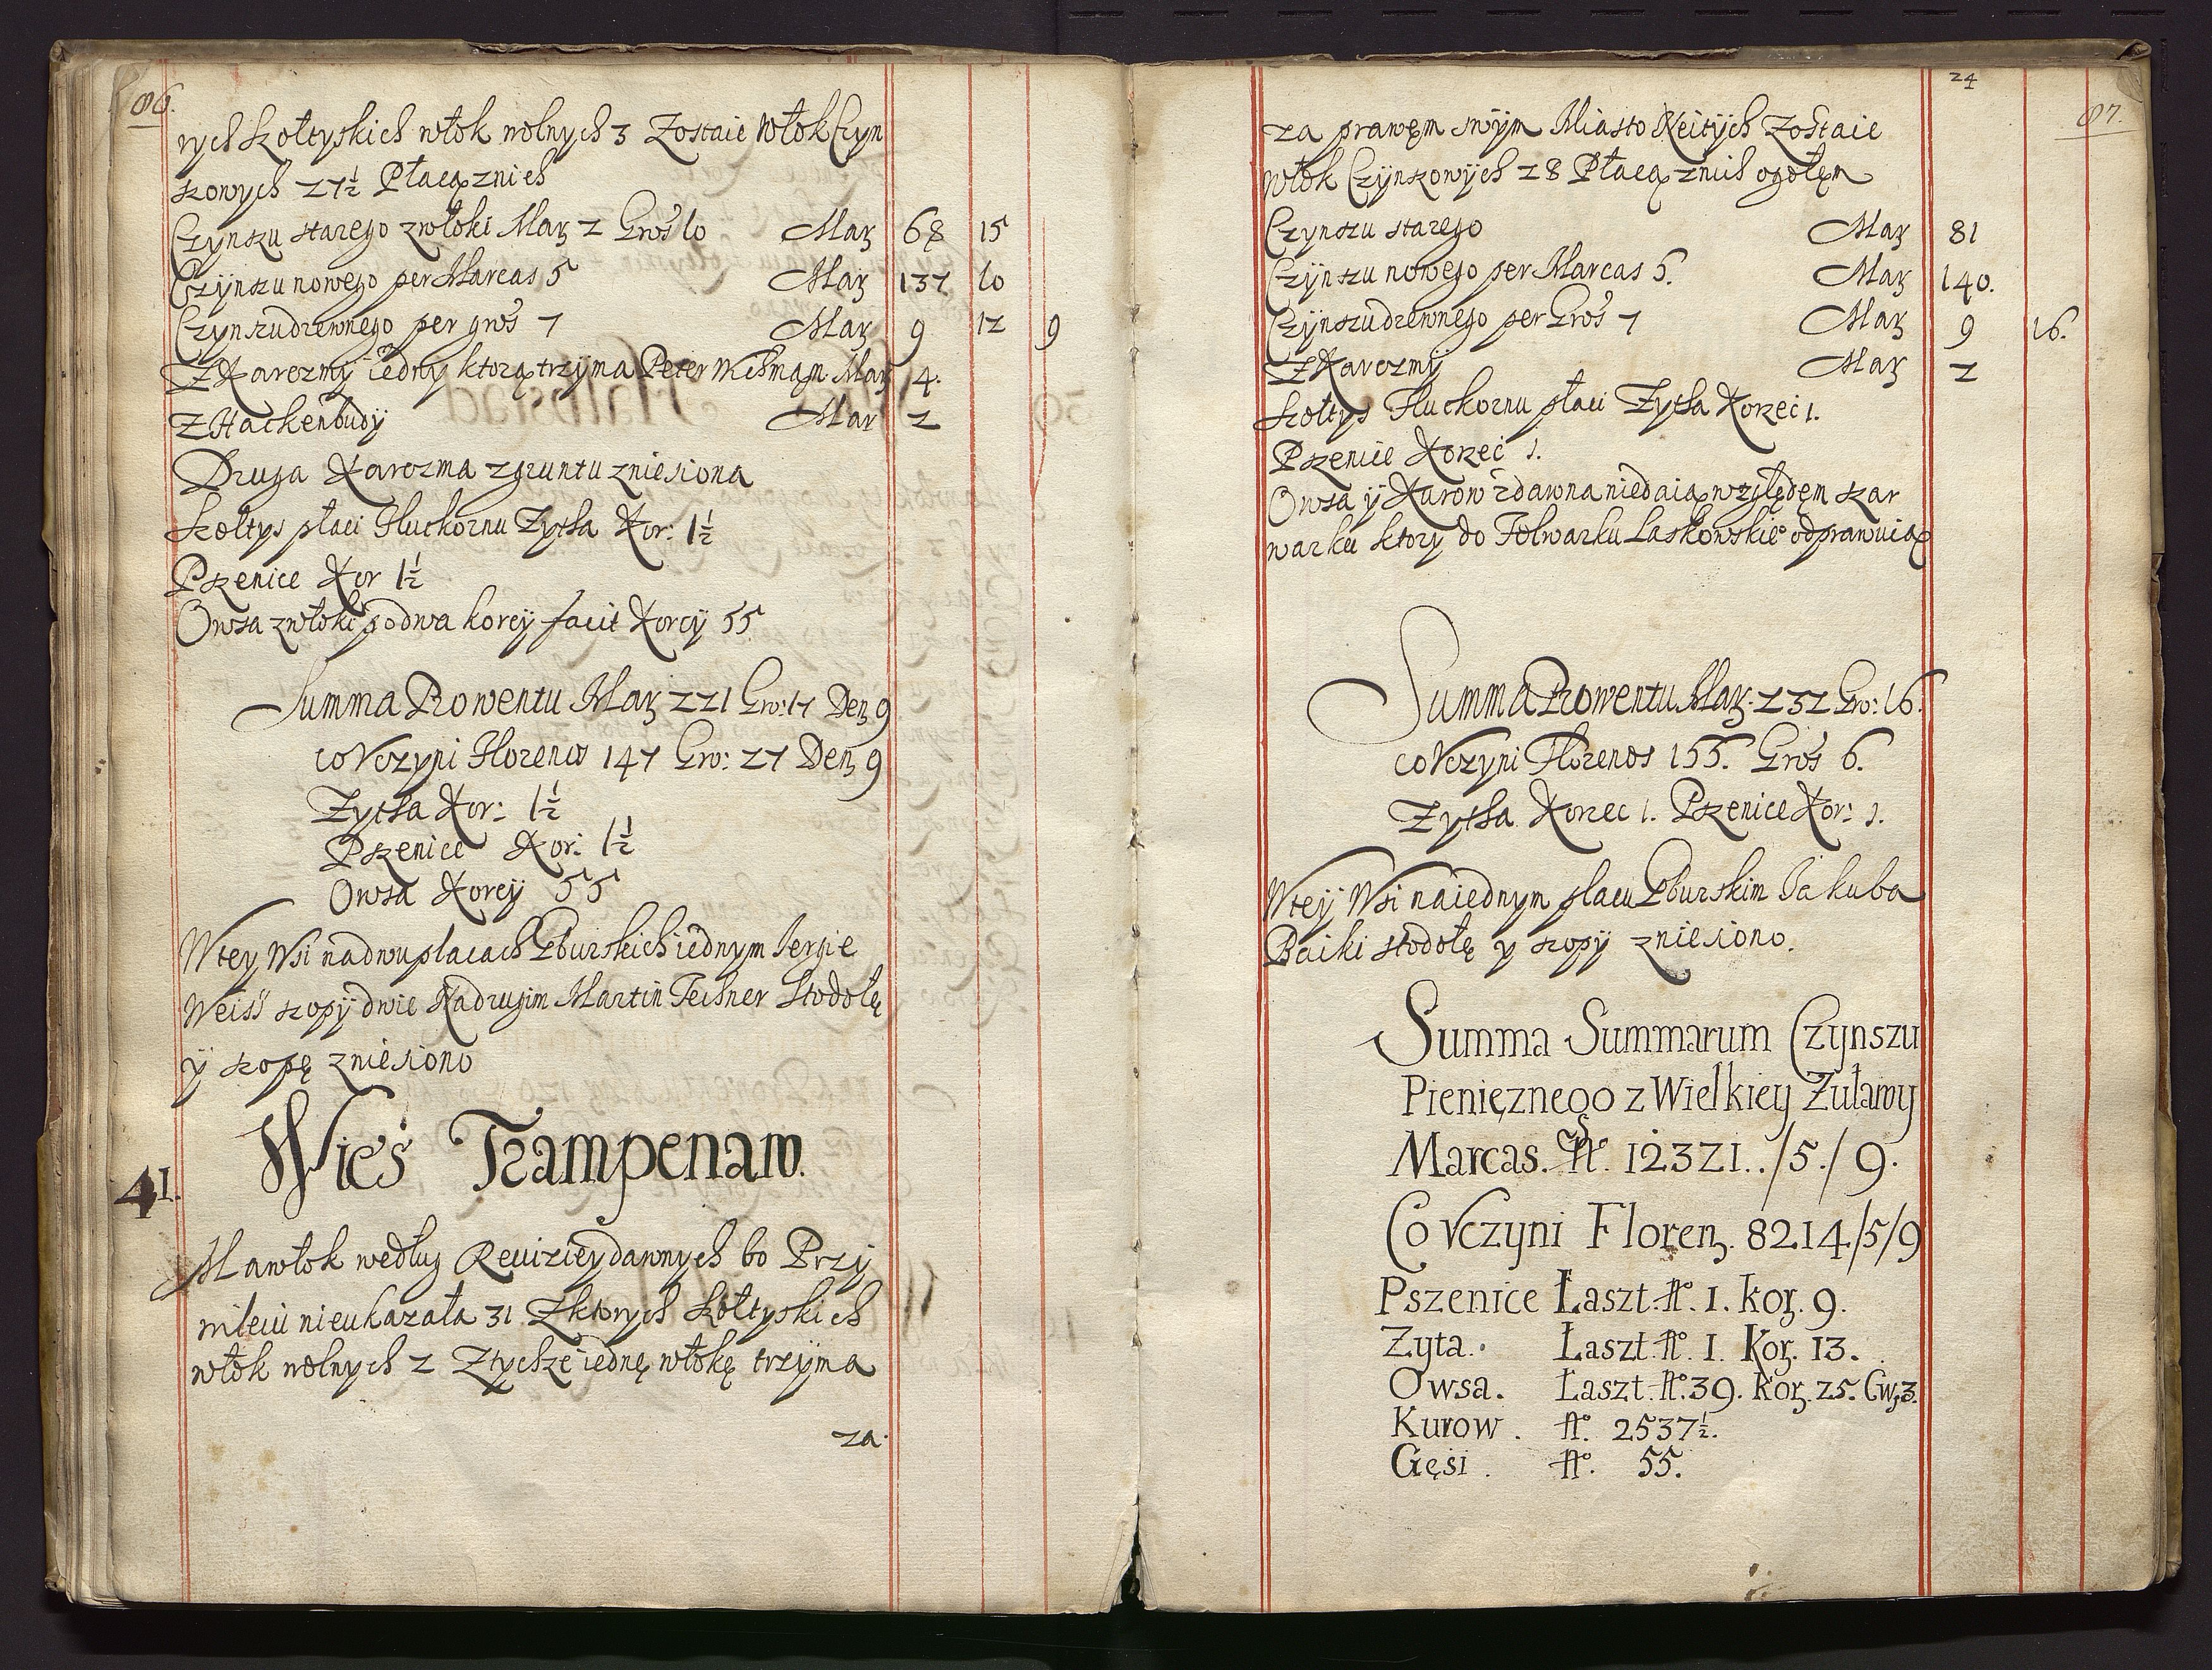 86.
rych szołtyskich włok wolnych 3 Zostaie włok Czyn
szowych 27½ Płacą znich
Czynszu starego zwłoki Marz 2 Groś 10 Marz 68 15
Czynszu nowego per Marcas 5 Marz 137 10
Czynszu drzewnego per groś 7 Marz 9 12 9
Z Karczmy iedny ktorą trzyma Peter Marz 4.
Z Hackenbudy Mar 2
Druga Karczma zgruntu zniesiona
szołtys płaci Fluckornu Zytha Kor: 1½
Pszenice Kor 1½
Owsa zwłoki podwa korcy facit Korcy 55
Summa Prowentu Marz 221 Gro: 17 Den 9
co Vczyni Florenos 147 Gro: 27 Den 9
Zytha Kor: 1½
Pszenice Kor: 1½
Owsa Korcy 55
Wtey Wsi nadwu placach Pburskich iednym Jergie
Weiss szopy dwie Nadrugim Martin Techner stodołę
y szopę zniesiono
41. Wieś Trampenaw.
Ma włok według Reuiziey dawnych bo Przy
wileiu nieukazała 31 Zktorych szołtyskich
włok wolnych 2 Ztychże iednę włokę trzyma
za
24
87.
za prawem swym Miasto Neitych zostaie
włok Czynszowych 28 Płacą znich ogołem
Czynszu starego Marz 81
Czynszu nowego per Marcas 5. Marz 140.
Czynszu drzewnego per Groś 7 Marz 9 16.
Z Karczmy Marz 2
szołtys Fluckornu płaci Zytha Korzec 1.
Pszenice Korzec 1.
Owsa y Kurow zdawna niedaią względem szar
warku ktory do Folwarku Laskowskie odprawuią
Summa Prowentu Marz. 232 Gro: 16.
co Vczyni Florenos 155. Groś 6.
Zytha Korzec 1. Pszenice Kor: 1.
Wtey Wsi naiednym placu Pburskim Jakuba
Baiki stodołę y szopy zniesiono.
Summa Summarum Czynszu
Pienięznego z Wielkiey Zuławy
Marcas. No. 12321../5./9.
Co Vczyni Floren. 8214/5/9
Pszenice Łaszt. No. 1. korz. 9.
Zyta. Łaszt. No. 1. Korz. 13.
Owsa. Łaszt. No. 39. korz. 25. Cw. 3.
Kurow. No. 2537½.
Gęsi. No. 55.